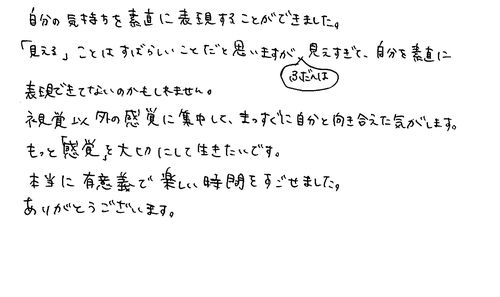 自分の気持ちを素直に表現することができました。
「見える」ことはすばらしいことだと思いますが、見えすぎて、自分を素直に
ふだんは
表現できてないのかもしれません。
視覚以外の感覚に集中して、まっすぐに自分と向き合えた気がします。
もっと「感覚」を大切にして生きたいです。
本当に有意義で楽しい時間をすごせました。
ありがとうございます。